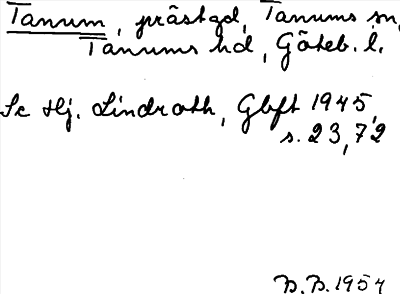 Tanum, prästgd, Tanums sn,
Tanums hd, Göteb. l.
Se Hj. Lindroth, Gbft 1945,
s. 23, 72
B.B. 1954